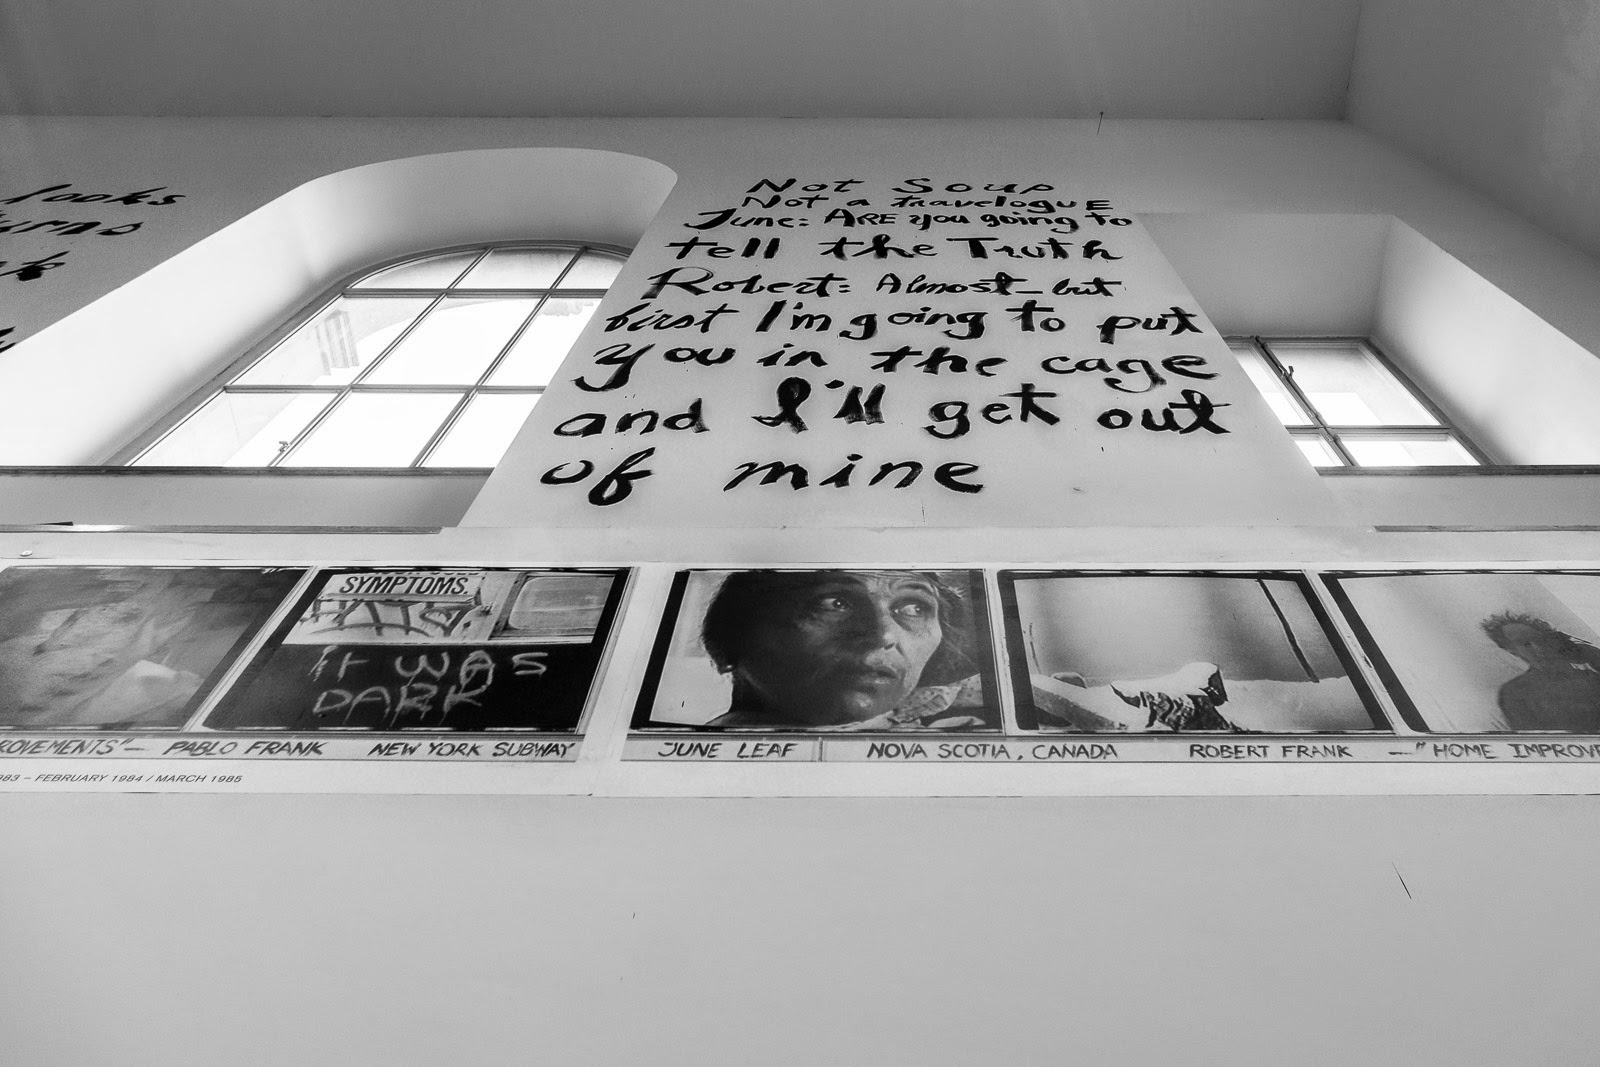 looks
Not Soup
Not a travelogue
June: ARE you going to
tell the Truth
Robert: Almost_but
first I'm going to put
you in the cage
and I'll get out
of mine
SYMPTOMS.
IT WAS
DARK
ROVEMENTS" — PABLO FRANK NEW YORK SUBWAY JUNE LEAF | NOVA SCOTIA, CANADA ROBERT FRANK — "HOME IMPROVE
983 – FEBRUARY 1984 / MARCH 1985